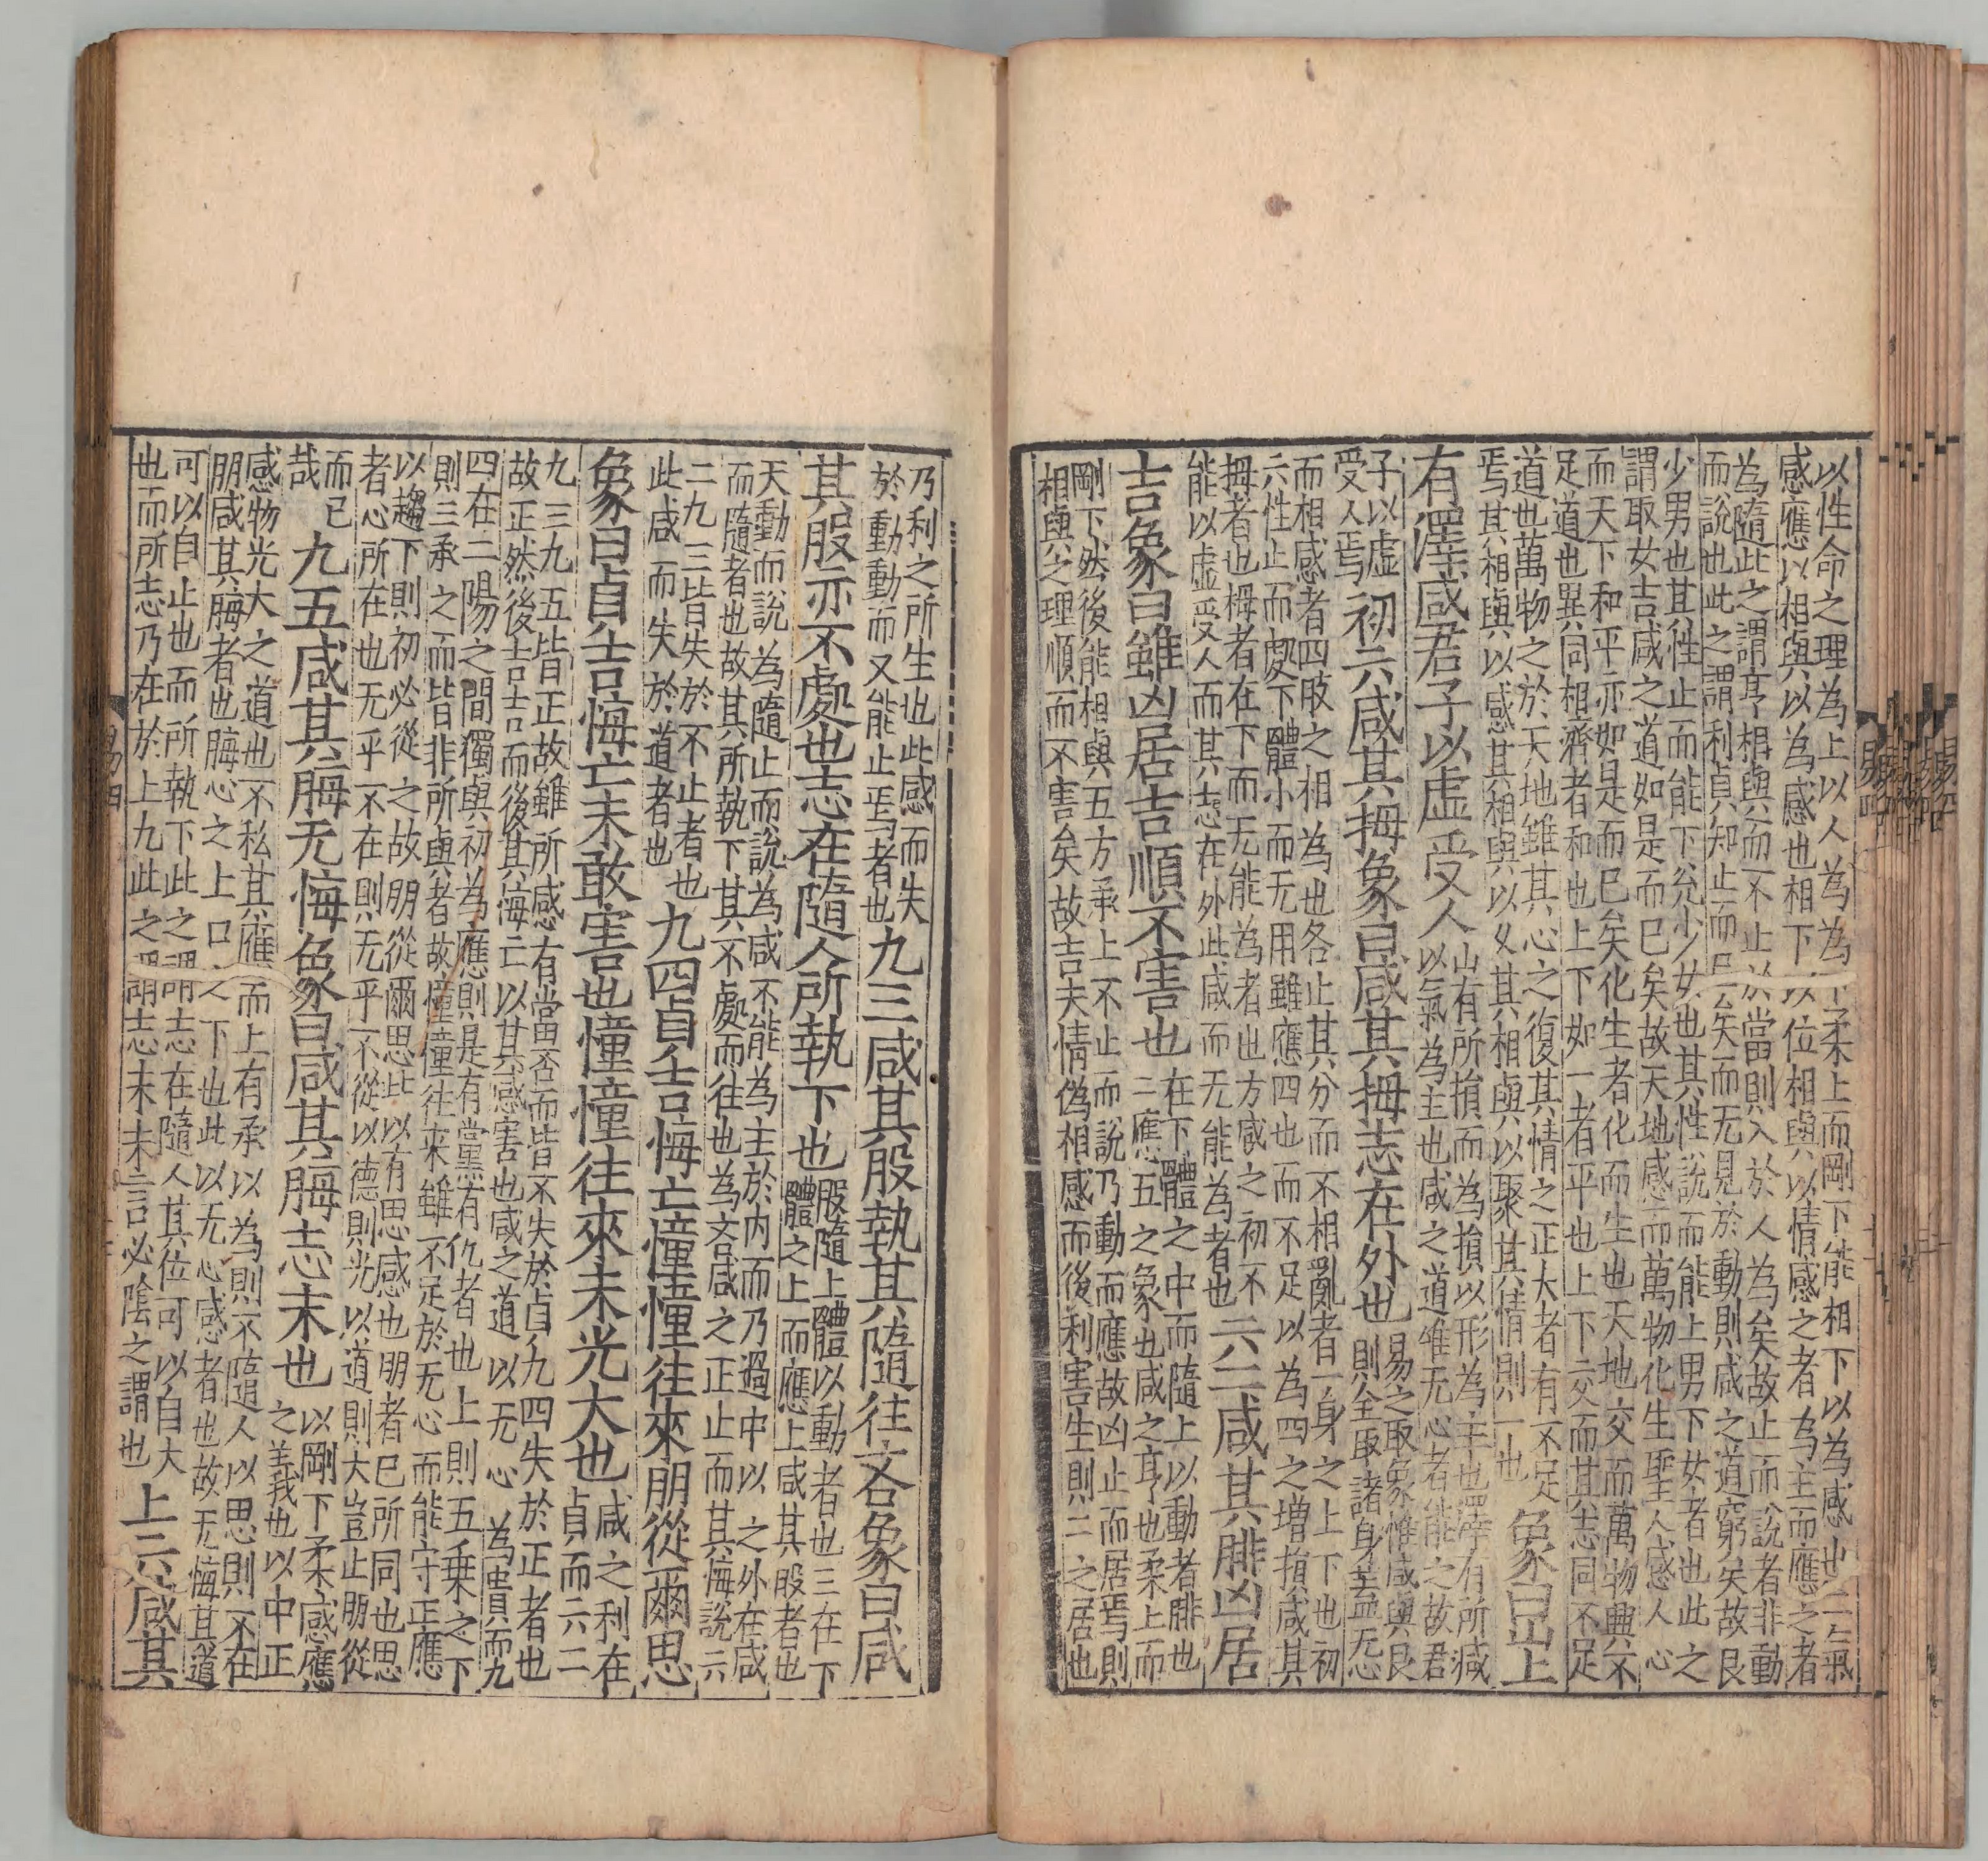 以性命之理為上以人為為下柔上而剛下能相下以為感也二氣
感應以相與以為感也相下以位相與以情感之者為主而應之者
為隨此之謂亨相與而不止於當則入於人為矣故止而說者非動
而說也此之謂利貞知止而止矣而无見於動則咸之道窮矣故艮
少男也其性止而能下兌少女也其性說而能上男下女者也此之
謂取女吉咸之道如是而已矣故天地感而萬物化生聖人感人心
而天下和平亦如是而已矣化生者化而生也天地交而萬物興不
足道也異同相濟者和也上下如一者平也上下交而其志同不足
道也萬物之於天地雖其心之復其情之正大者有不足
焉其相與以感其相與以久其相與以聚其情則一也
象曰山上
有澤咸君子以虛受人
山有所損而為損以形為主也澤有所減
以氣為主也咸之道雖无心者能之故君
子以虛
受人焉
初六咸其拇象曰咸其拇志在外也
易之取象惟咸與艮
則全取諸身蓋无心
而相感者四肢之相為也各止其分而不相亂者一身之上下也初
六性止而處下體小而无用雖應四也而不足以為四之增損咸其
拇者也拇者在下而无能為者也方感之初不
能以虛受人而其志在外此咸而无能為者也
六二咸其腓凶居
吉象曰雖凶居吉順不害也
在下體之中而隨上以動者腓也
二應五之象也咸之亨也柔上而
剛下然後能相與五方承上不止而說乃動而應故凶止而居焉則
相與之理順而不害矣故吉夫情偽相感而後利害生則二之居也
乃利之所生也此感而失
於動動而又能止焉者也
九三咸其股執其隨往吝象曰咸
其股亦不處也志在隨人所執下也
股隨上體以動者也三在下
體之上而應上咸其股者也
天動而說為隨止而說為咸不能為主於內而乃過中以之外在咸
而隨者也故其所執下其不處而往也為吝咸之正止而其悔說六
二九三皆失於不止者也
此咸而失於道者也
九四貞吉悔亡憧憧往來朋從爾思
象曰貞吉悔亡未敢害也憧憧往來未光大也
咸之利在
貞而六二
九三九五皆正故雖所感有當否而皆不失於貞九四失於正者也
故正然後吉吉而後其悔亡以其感害也咸之道以无心為貴而九
四在二陽之間獨與初為應則是有黨有仇者也上則五乗之下
則三承之而皆非所與者故憧憧往來雖不足於无心而能守正應
以趨下則初必從之故朋從爾思此以有思感也朋者已所同也思
者心所在也无乎不在則无乎不從以德則光以道則大豈止朋從
而已
哉
九五咸其脢无悔象曰咸其脢志末也
以剛下柔感應
之義也以中正
感物光大之道也不私其應而上有承以為則不隨人以思則不在
朋咸其脢者也脢心之上口之下也此以无心感者也故无悔其道
可以自止也而所執下此之謂志在隨人其位可以自大
也而所志乃在於上九此之謂志末未言必陰之謂也
上六咸其
易四